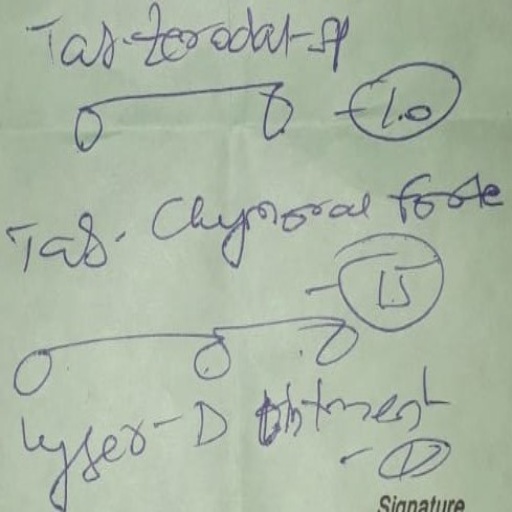 Tab. Zerodol-sp
0 — 0 - 10
Tab. Chymoral forte
- 15
0 — 0 — 0
Lyser-D Ointment
- 1
Signature